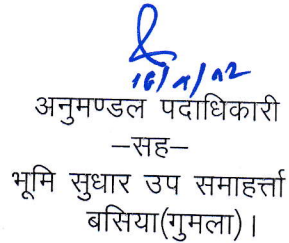 अनुमण्डल पदाधिकारी
–सह–
भूमि सुधार उप समाहर्त्ता
बसिया(गुमला)।